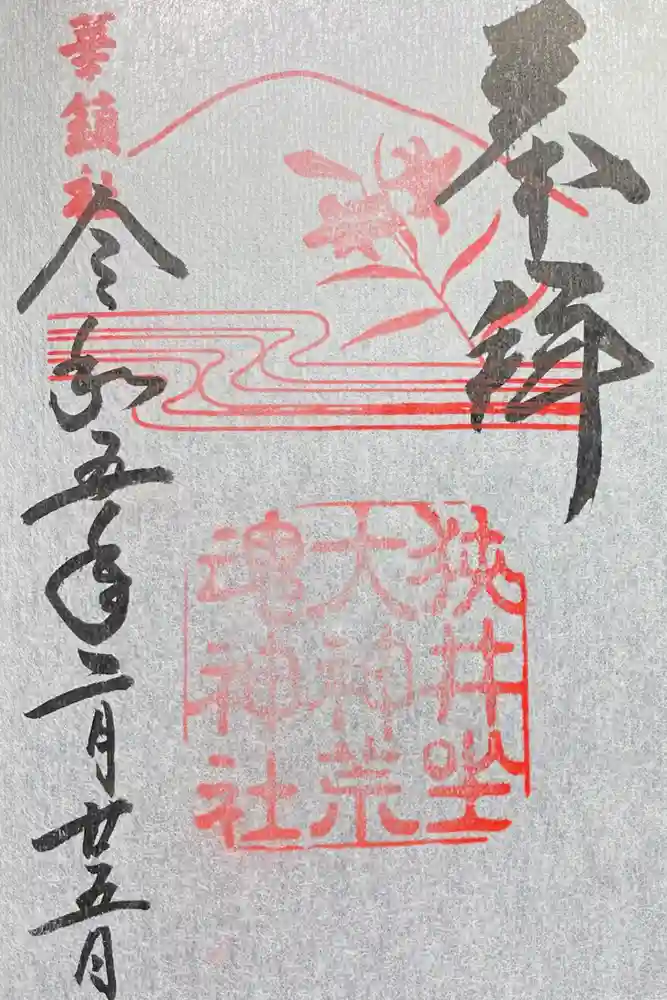 奉拝
狭井坐
大神荒
魂神社
華鎮社
令和五年二月廿五日